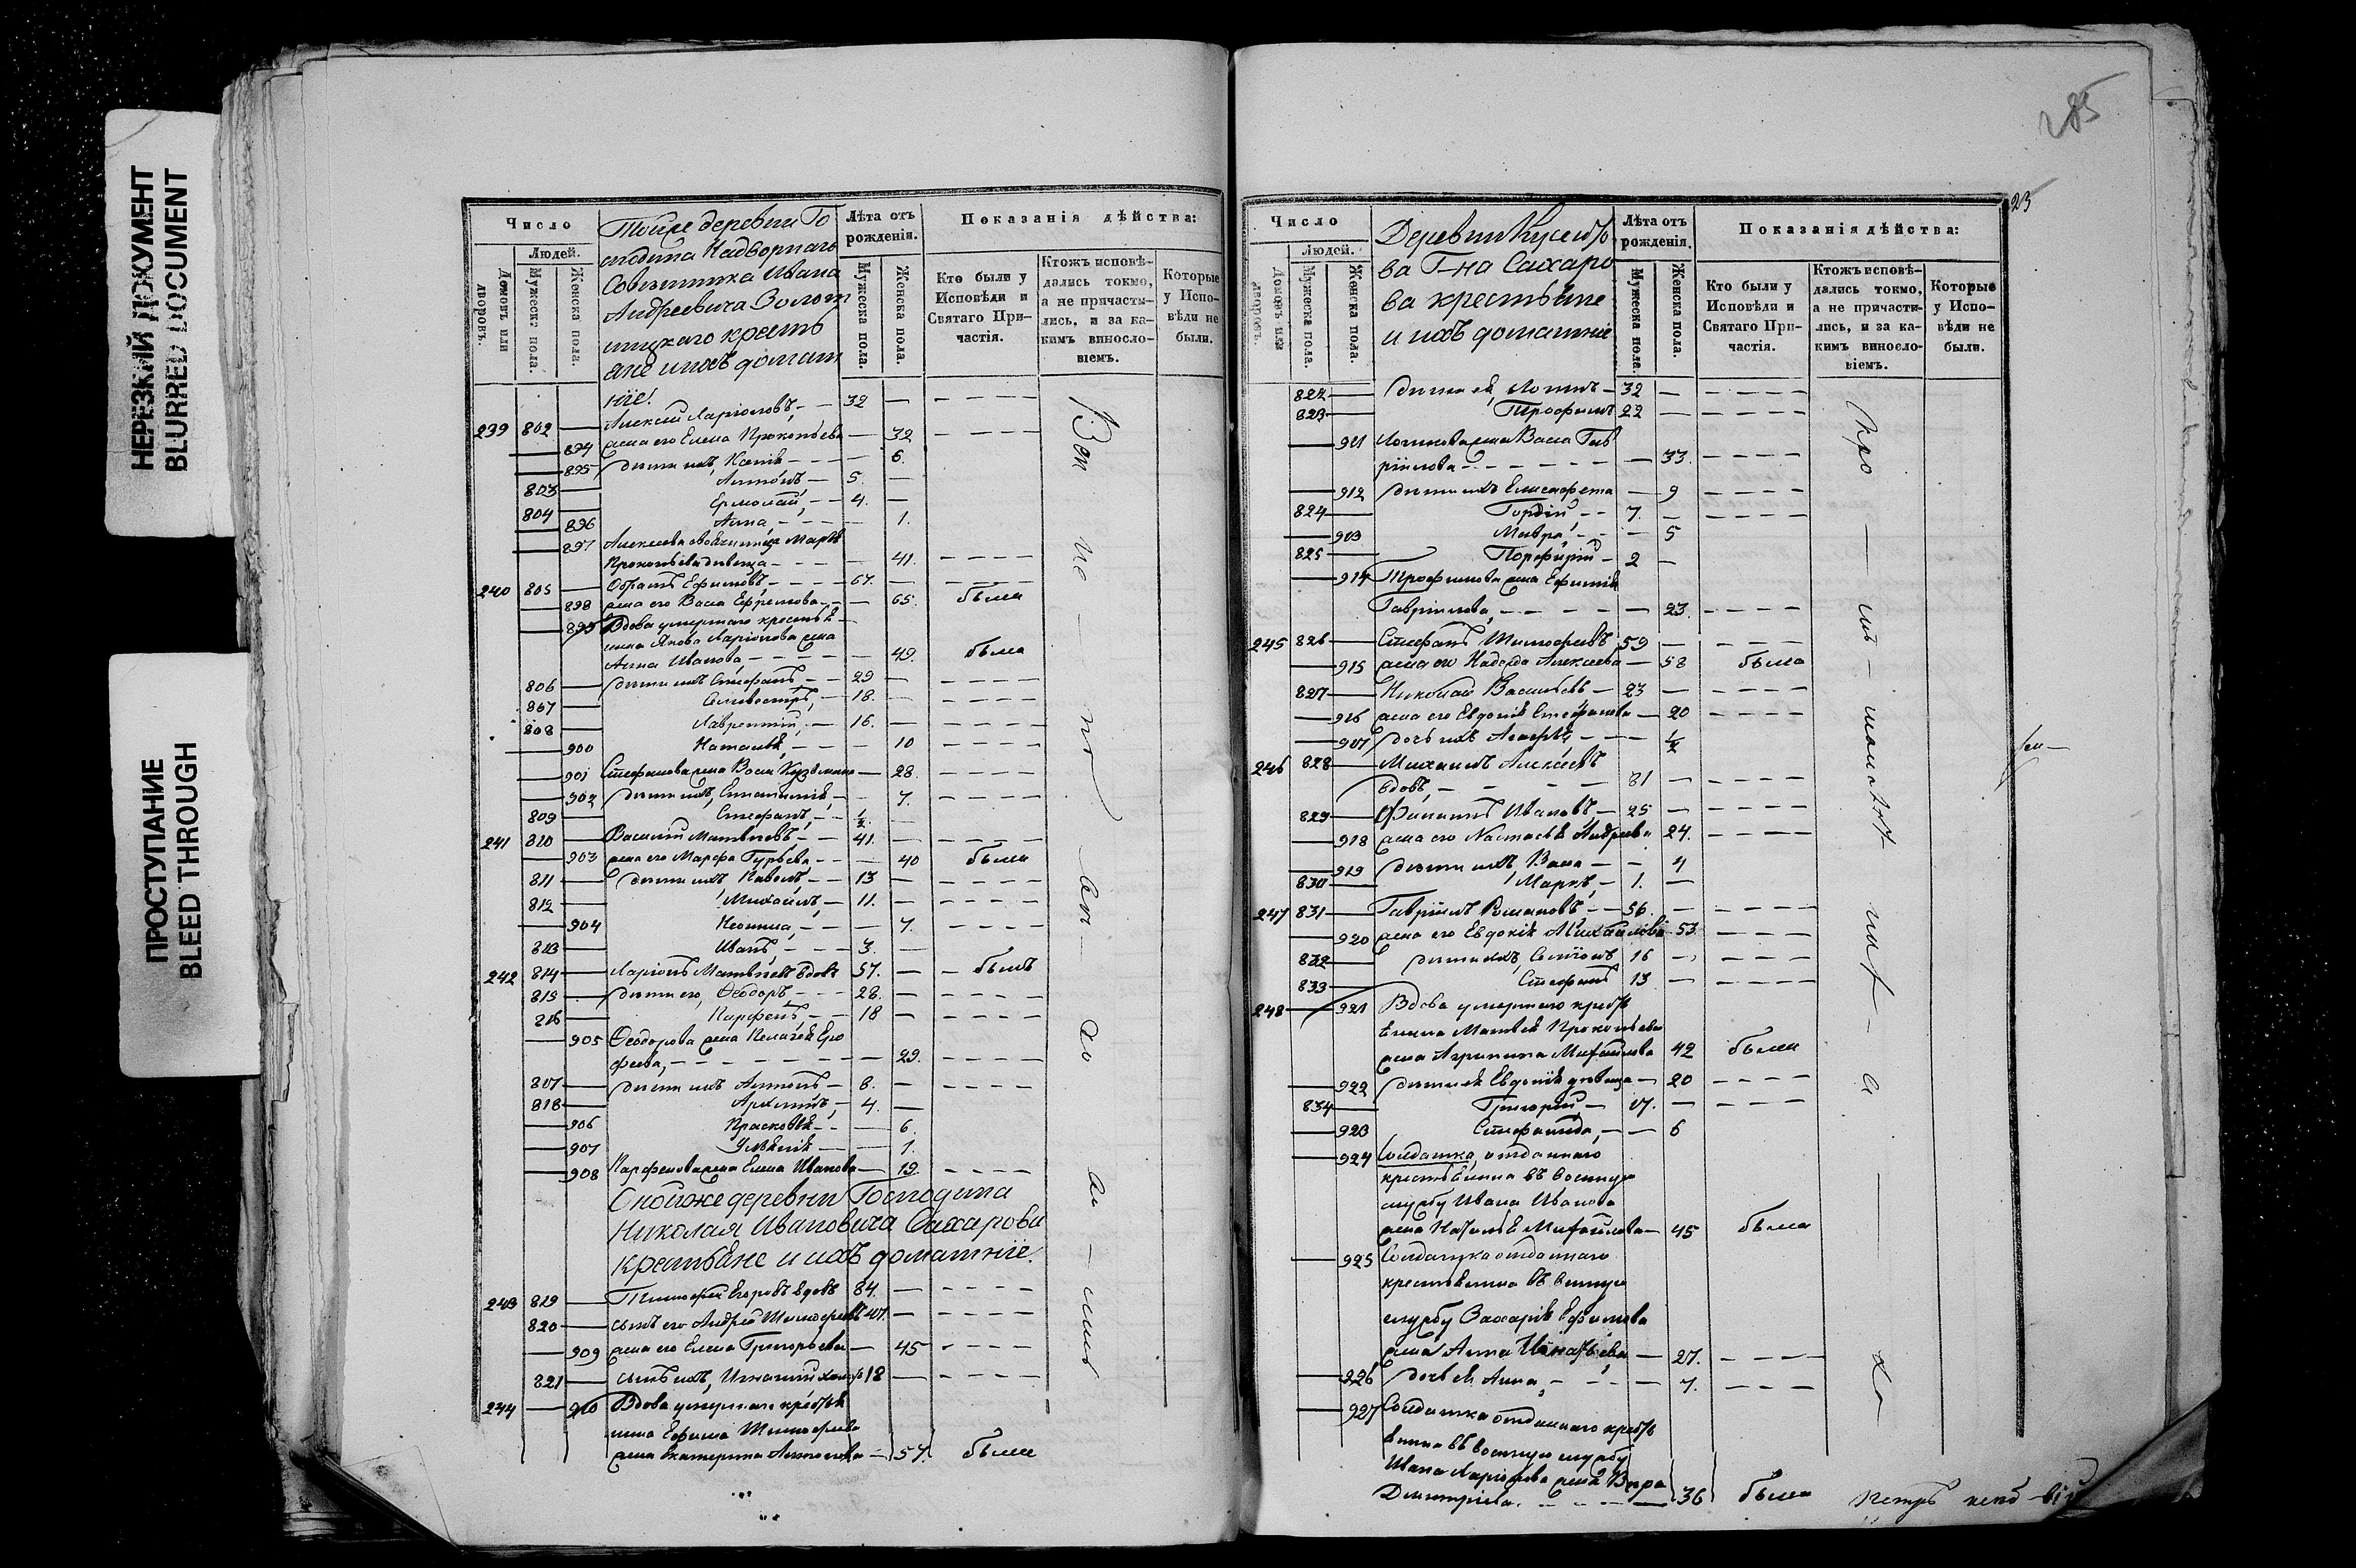 НЕРЕЗКИЙ ДОКУМЕНТ
BLURRED DOCUMENT
ПРОСТУПАНИЕ
BLEED THROUGH
Число
Людей.
Домовъ или дворовъ.
Мужеска пола.
Женска пола.
Тойже деревни Го
сподина Надворнаго
Совѣтника Ивана
Андреевича
крестья
не и ихъ домаш
ніе.
Лѣта отъ рожденія.
Мужеска пола.
Женска пола.
Показанія дѣйства:
Кто были у Исповѣди и Святаго При-
частія.
Ктожъ исповѣ-
дались токмо,
а не причасти-
лись, и за ка-
кимъ винослo-
віемъ.
Которые
у Испо-
вѣди не
были.
239 802 Алексѣй Ларіоновъ 32
894 жена его Елена Прокопьева 32
895 дѣти ихъ, Ксенія 6.
803 Антонъ 5.
804 Ермолай 4.
896 Анна 1.
897 Алексѣева своячиница Марѳа
Прокопьева дѣвица 41.
240 805 Ефимовъ 67.
898 жена его Васса Ефремова 65. была
899 Вдова умершаго крестья
нина Якова Ларіонова жена
Анна Иванова 49. была
806 дѣти ихъ Стефанъ 29
807 Селивестръ 18.
808 Лаврентій 16.
900 Наталья 10
901 Стефанова жена Васса Кузьмина 28.
902 дѣти ихъ, 7.
809 Стефанъ 1/2
241 810 Василій Матвѣевъ 41.
903 жена его Марѳа Гурьева 40 была
811 дѣти ихъ Павелъ 13
812 Михаилъ 11.
904 Неонила 7.
813 Иванъ 3.
242 814 Ларіонъ Матвѣевъ вдовъ 57. былъ
815 дѣти его, Ѳеодоръ 28.
816 Парфенъ 18
905 Ѳеодорова жена Пелагея Еро
фѣева 29.
817 дѣти ихъ Антонъ 8.
818 Архипъ 4.
906 Прасковья 6.
907 Ульянія 1.
908 Парфенова жена Елена Иванова 19.
Онойже деревни Господина
Николая Ивановича Сахарова
крестьяне и ихъ домашніе.
243 819 Тимофей Егоровъ вдовъ 84.
820 сынъ его Андрей Тимофеевъ 47.
909 жена его Елена Григорьева 45
821 сынъ ихъ, Игнатій холостъ 18
244 910 Вдова умершаго крестья
нина Ефима Тимофеева
жена Екатерина Антонова 57. была
285
23
Число
Людей.
Домовъ или дворовъ.
Мужеска пола.
Женска пола.
Деревни
ва Г-на Сахаро
ва крестьяне
и ихъ домашніе
Лѣта отъ рожденія.
Мужеска пола.
Женска пола.
Показанія дѣйства:
Кто были у
Исповѣди и
Святаго При-
частія.
Ктожъ исповѣ-
дались токмо,
а не причасти-
лись, и за ка-
кимъ винослo-
віемъ.
Которые
у Испо-
вѣди не
были.
822 дѣти ея, Логинъ 32
823 Трофимъ 22
911 Логинова жена Васса Гав
ріилова 33.
912 дѣти ихъ Елисафета 9
824 Гордій 7.
913 Мавра 5
825 Порфирій 2
914 Трофимова жена Ефимія
Гавріилова 23.
245 826 Стефанъ Тимофеевъ 59
915 жена его Надежда Алексѣева 58 была
827 Николай Васильевъ 23
916 жена его Евдокія Стефанова 20
917 дочь ихъ Агафья 1/2
246 828 Михаилъ Алексѣевъ
вдовъ 81
829 Филиппъ Ивановъ 25
918 жена его Настасья Андреева 24.
919 дѣти ихъ, Васса 4
830 Маркъ 1.
247 831 Гавріилъ Романовъ 56.
920 жена его Евдокія Михайлова 53
832 дѣти ихъ, 16
833 Стефанъ 13
248 921 Вдова умершаго кресть
янина Матвѣя Прокопьева
жена Агрипина Михайлова 42 была
922 дѣти ея Евдокія дѣвица 20
834 Григорій 17.
923 Стефанида 6
924 Солдатка, отданнаго
крестьянина въ военную
службу Ивана Иванова
жена Наталья Михайлова 45 была
925 Солдатка отданнаго
крестьянина въ военную
службу Захарія Ефимова
жена Анна Игнатьева 27.
926 дочь ея Анна 7.
927 Солдатка отданнаго кресть
янина въ военную службу
Ивана Ларіонова жена Вѣра
Димитріева 36 была